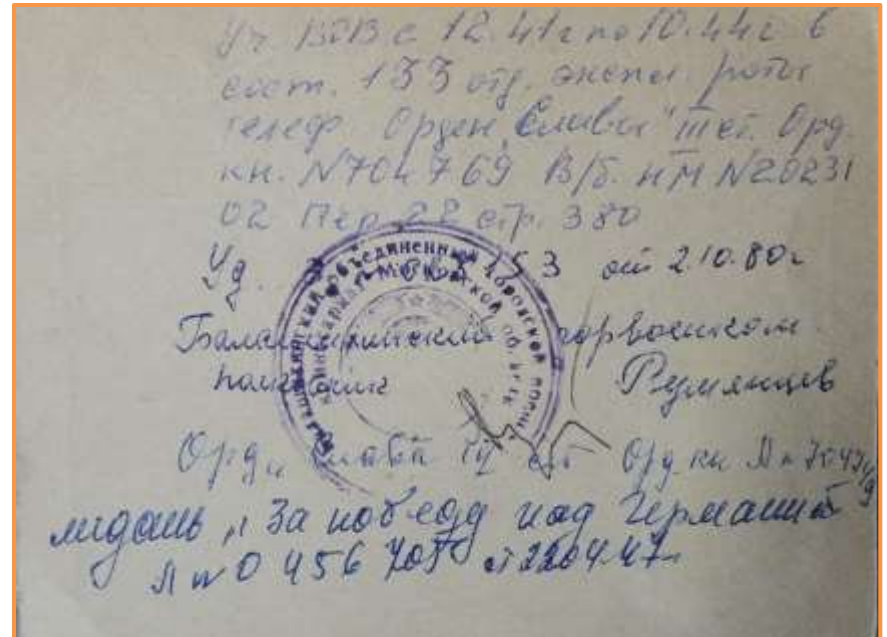 Уч ВОВ с 12.41г по 10.44г в
сост. 133 отд. экспл. роты
телеф. Орден „Славы" III ст. Орд.
кн. N704769 В/б. НМ N20231
02 Пер 22 стр. 380
Уд. 53 от 2.10.80г
Балашихинский горвоенком
полковник Румянцев
Орд „Слава III ст Орд кн
медаль „За победу над Германией
Л N 0456705 от 220447